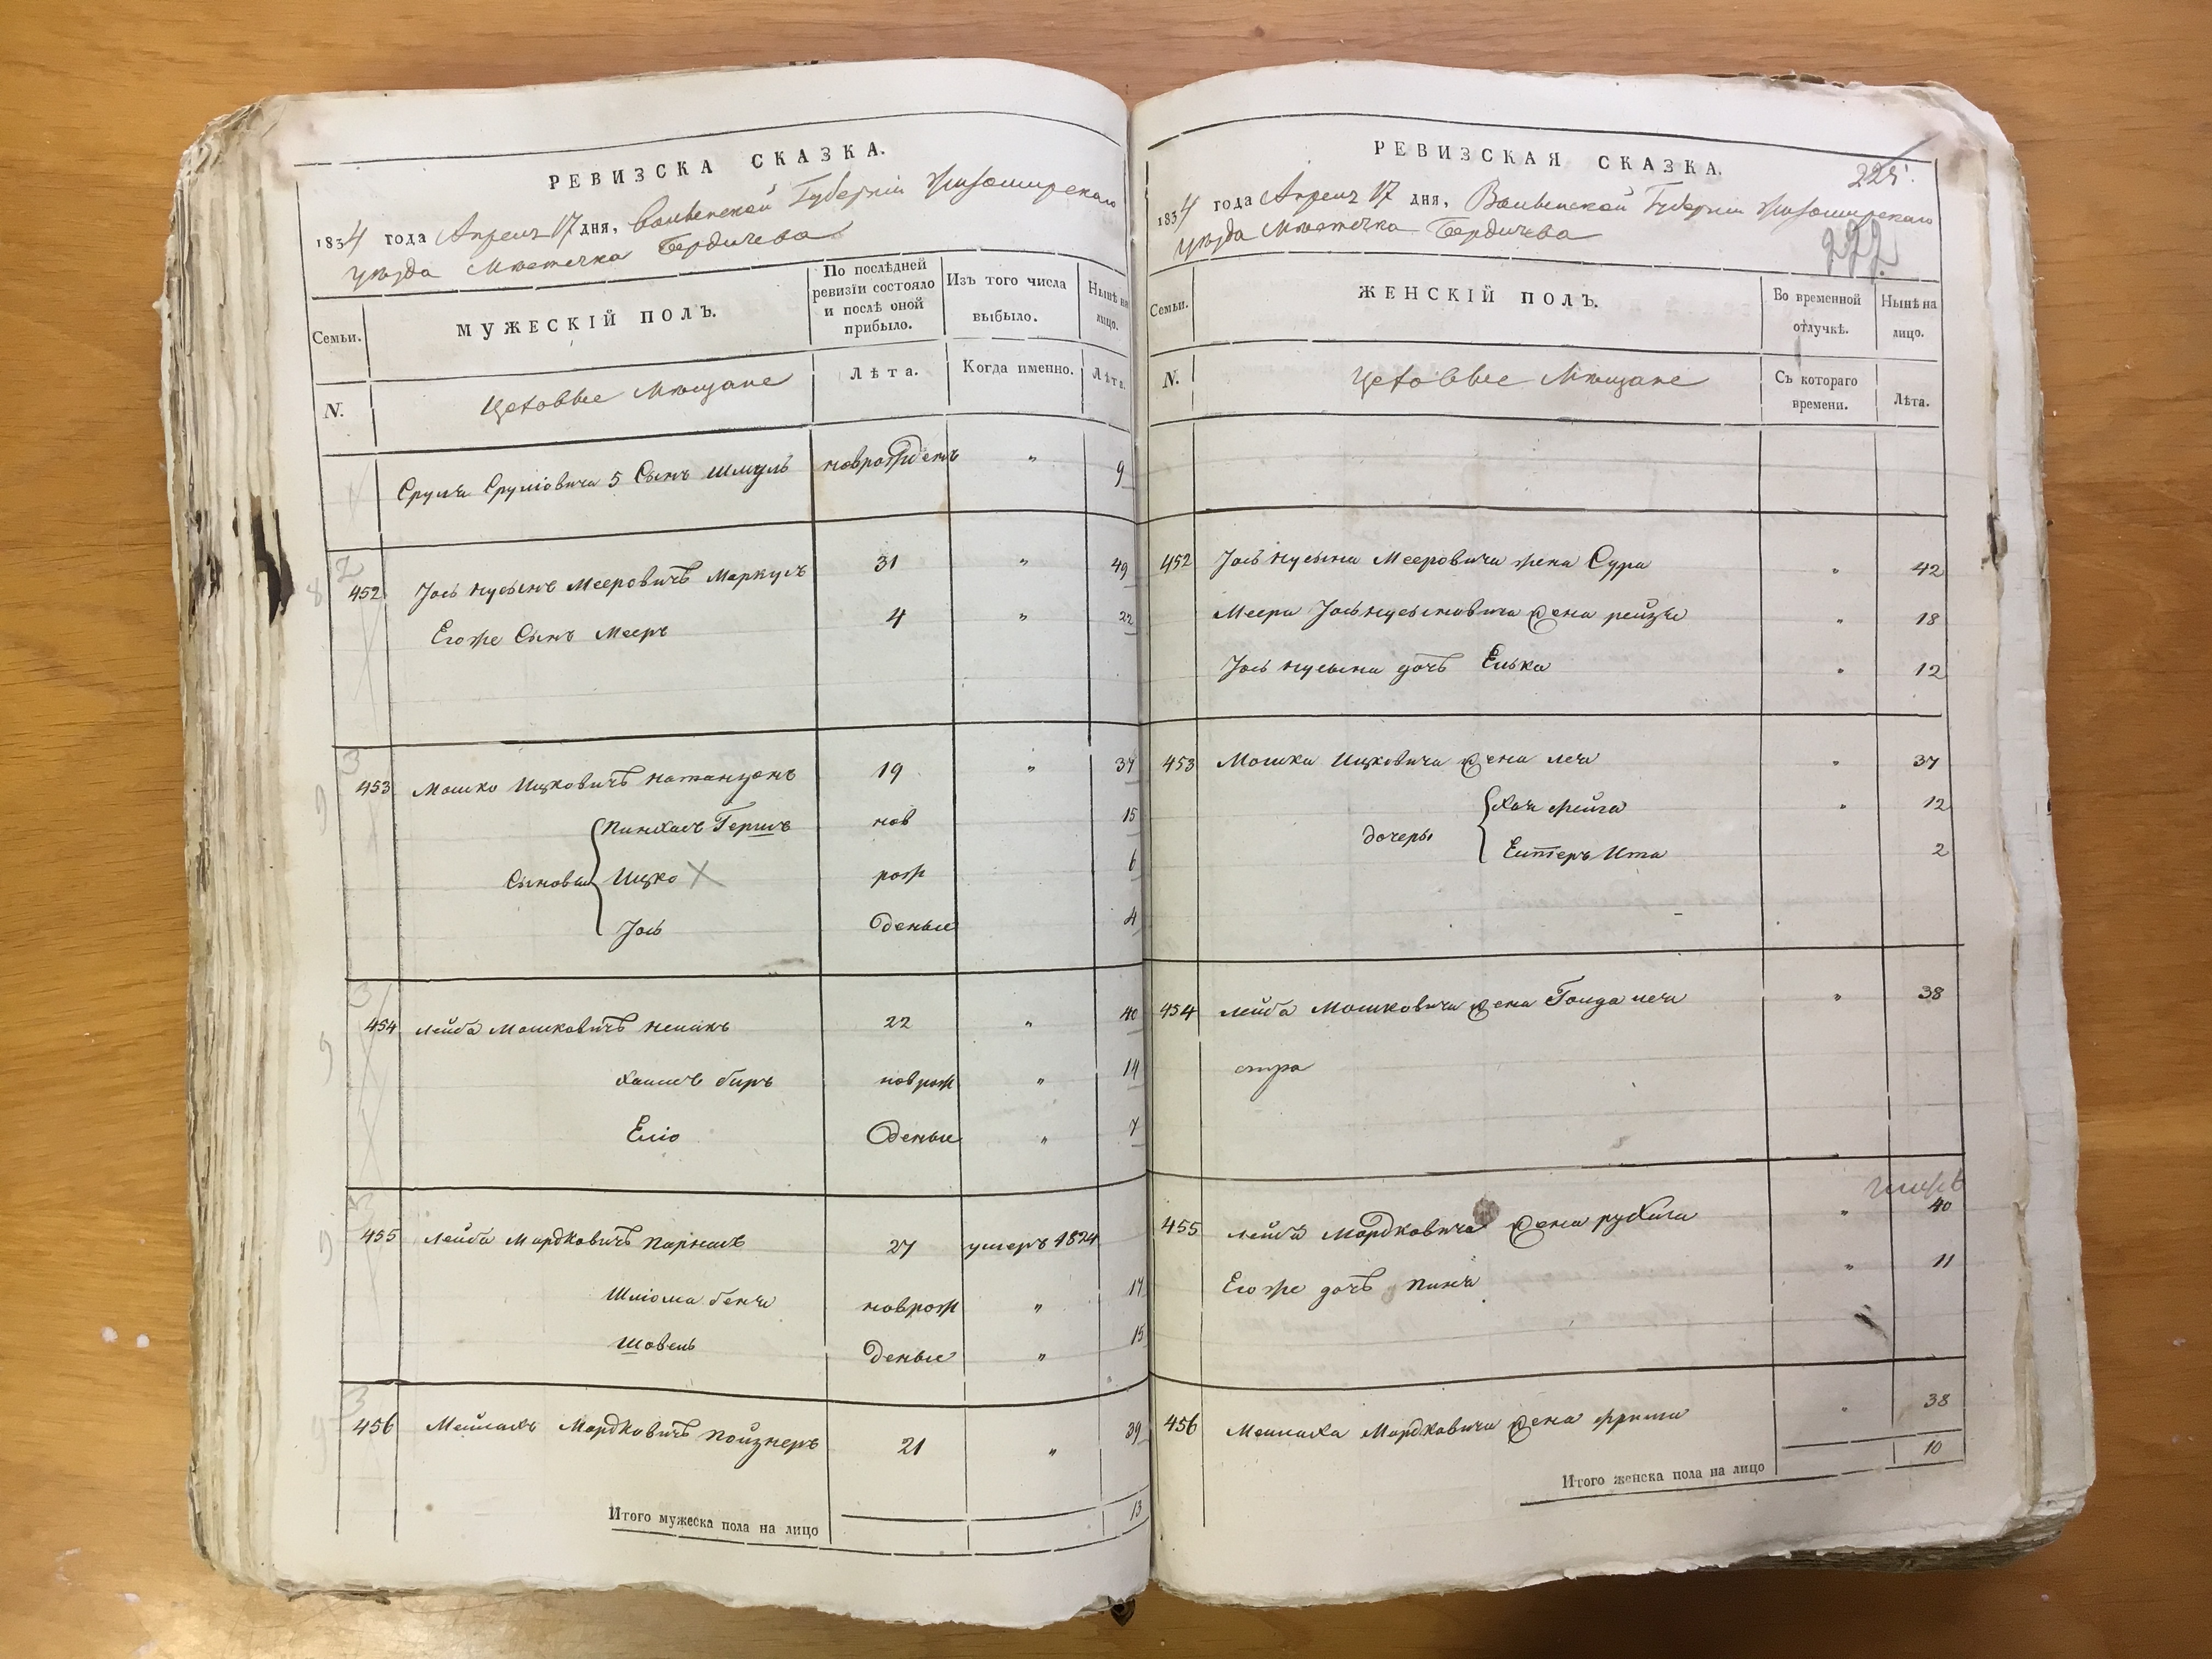 РЕВИЗСКА СКАЗКА.
1834 года Апреля 17 дня, Волынской Губернии Житомирского
уезда Местечка Бердичева
Семьи.
МУЖЕСКІЙ ПОЛЪ.
По послѣдней ревизіи состояло и послѣ оной прибыло.
Изъ того числа выбыло.
Нынѣ на лицо.
N.
Цеховые Мещане
Лѣта.
Когда именно.
Лѣта.
Сруля Сруліовича 5 Сынъ Шмуль новрожденъ " 9
452 Іось нусынъ Мееровичъ Маркусъ 31 " 49
Егоже Сынъ Мееръ 4 " 22
453 Мошко Ицковичъ Натанзонъ 19 " 37
Пинхасъ Гершъ нов 15
Сыновья Ицко рож 6
Іось деные 4
454 Лейба Мошковичъ 22 " 40
Хаимъ беръ новрож " 14
Еліо деные " 7
455 Лейба Мордковичъ Парнасъ 27 умеръ 1824
Шліома бенчи новрож " 17
Шовель деные " 15
456 Меилахъ Мордковичъ Пойзнеръ 21 " 39
Итого мужеска пола на лицо 13
РЕВИЗСКАЯ СКАЗКА.
225.
222
1834 года Апреля 17 дня, Волынской Губернии Житомирского
уезда Местечка Бердичева
Семьи.
ЖЕНСКІЙ ПОЛЪ.
Во временной отлучкѣ.
Нынѣ на лицо.
N.
Цеховые Мещане
Съ котораго времени.
Лѣта.
452 Іось нусына Мееровича жена Сура " 42
Меера Іосьнусыновича жена рейзя " 18
Іось нусына дочъ Елька " 12
453 Мошка Ицковича жена лея " 37
Хая фейга " 12
дочеры
Ентеръ Ита 2
454 лейба Мошковича жена Голда лея " 38
455 лейба Мордковича жена рухля " 40
Егоже дочъ Пиня " 11
456 Меилаха Мордковича жена фрима " 38
Итого женска пола на лицо 10